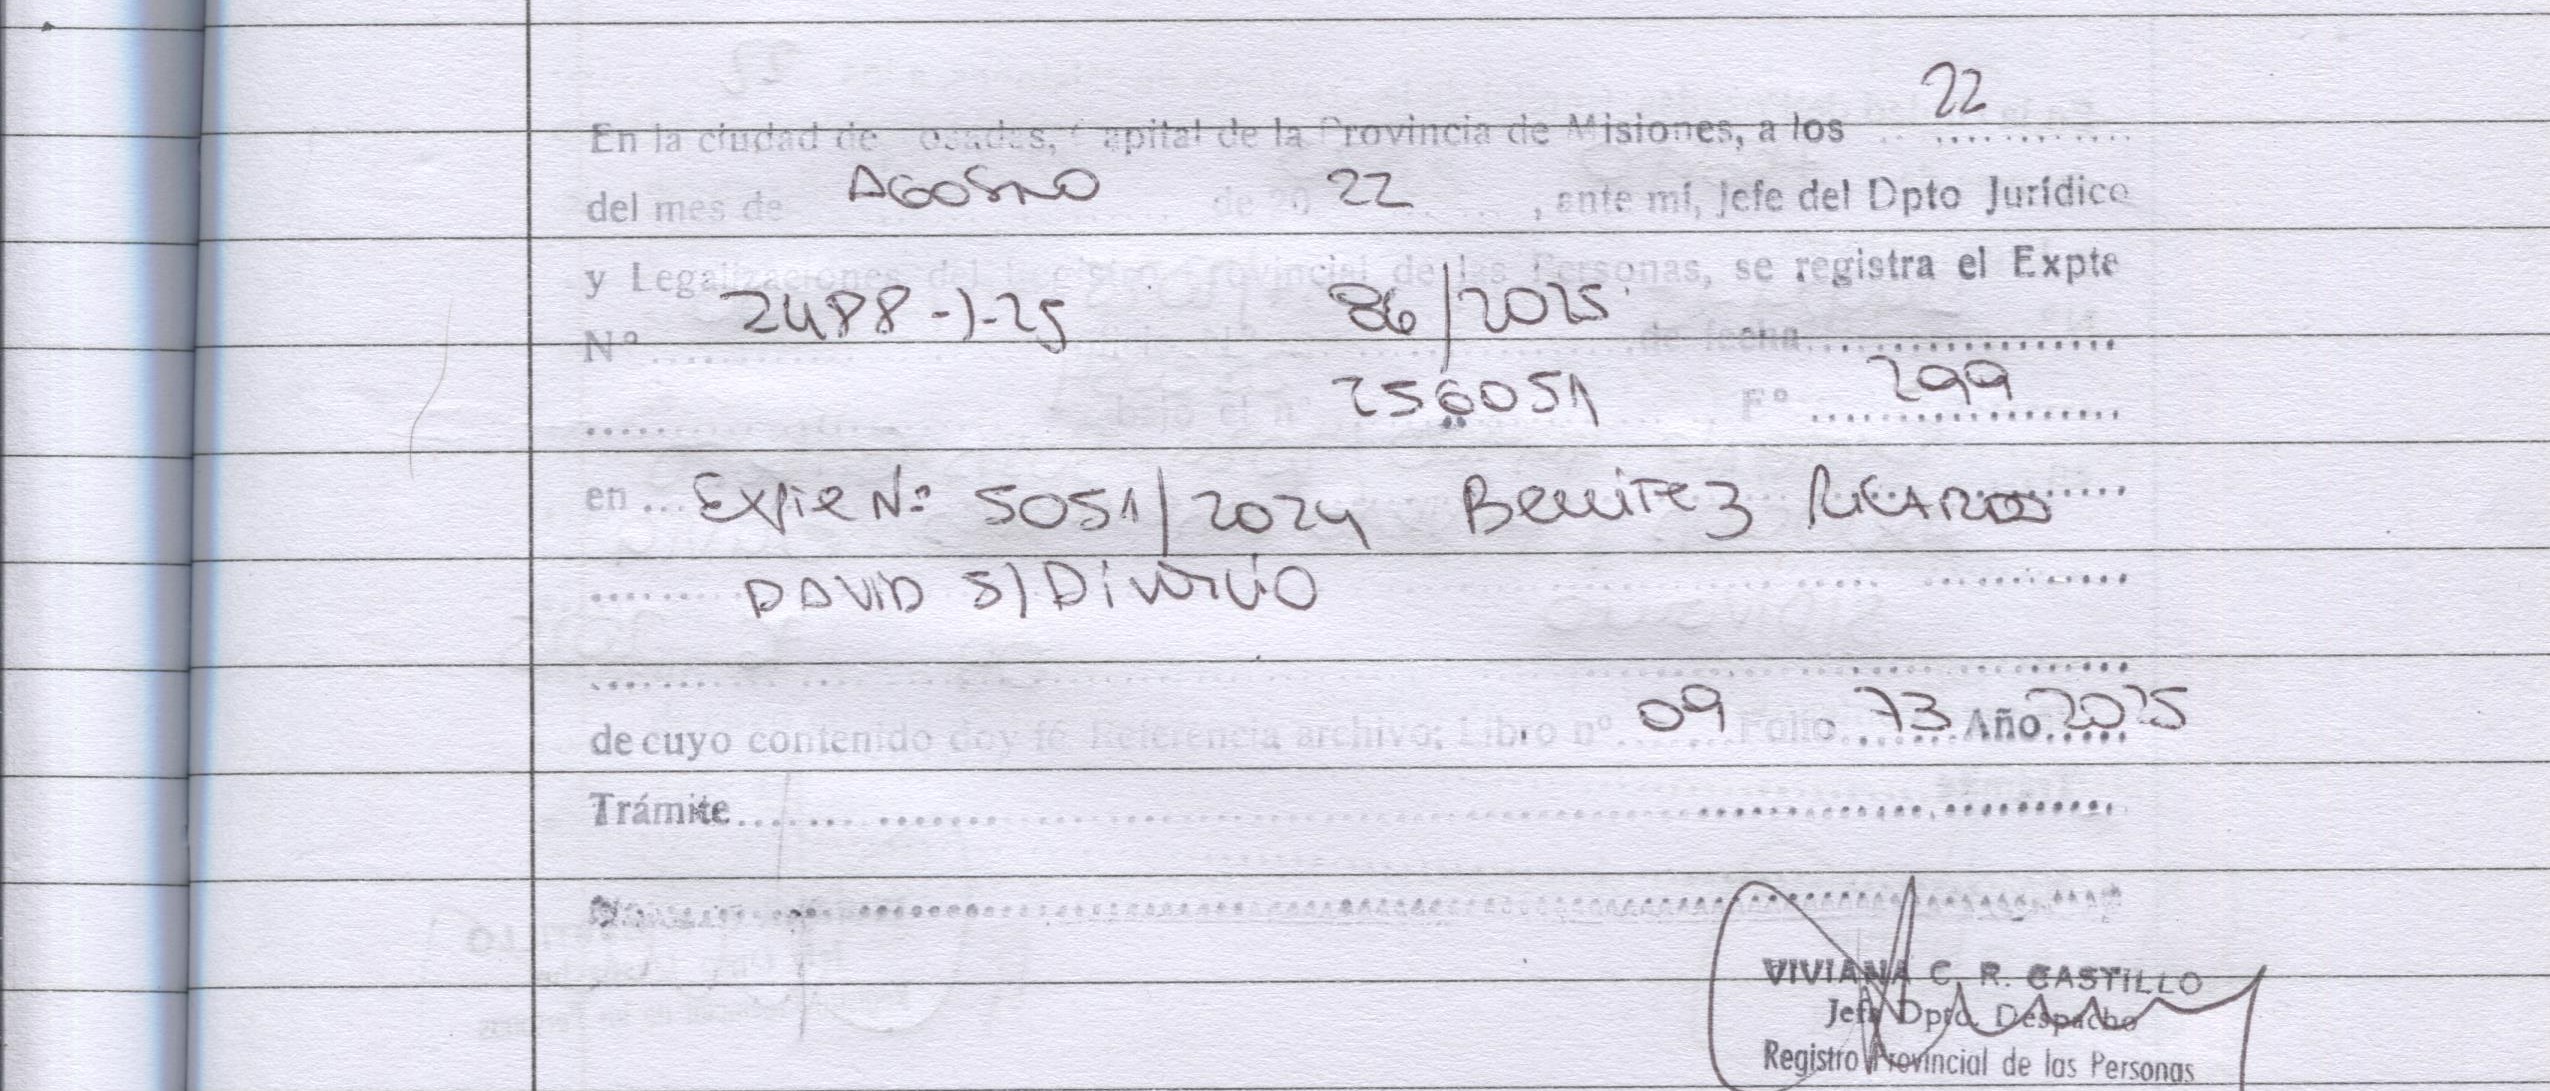 22
En la ciudad de osadas, apital de la Provincia de Misiones, a los ............
del mes de AGOSTO de 20 22 ......, ante mí, Jefe del Dpto Jurídico
y Legalizaciones del Registro Provincial de las Personas, se registra el Expte
Nº ... 2488-J-25 86/2025 de fecha ..................
..... bajo el nº 256051 Fº ... 299
en ... Expte Nº 5051/2024 Benitez Ricardo
DAVID S/Divorcio
de cuyo contenido doy fé Referencia archivo; Libro nº 09 Folio 73 Año 2025
Trámite..................
VIVIANA C. R. CASTILLO
Jefa Dpto. Despacho
Registro Provincial de las Personas